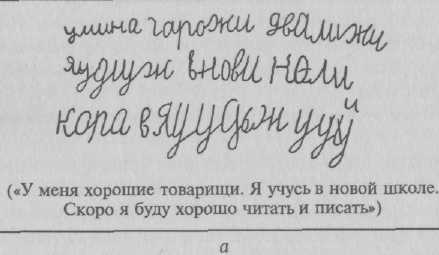 умина гарожи двалижи
яудиуж внови нали
кора в яууцьж ууй
(«У меня хорошие товарищи. Я учусь в новой школе.
Скоро я буду хорошо читать и писать»)
а